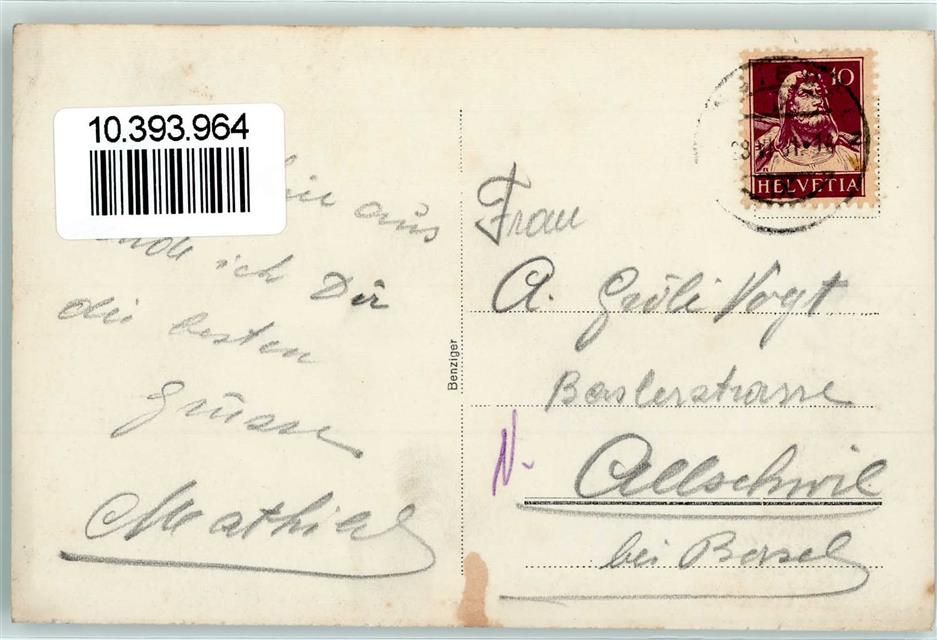 10.393.964
aus
ich Dir
die besten
Grüsse
Mathild
Benziger
10
HELVETIA
Frau
A. Gröli Vogt
Baslerstrasse
Allschwil
bei Basel
N.